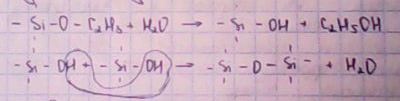 - Si - O - C₂H₅ + H₂O → - Si - OH + C₂H₅OH
- Si - OH + - Si - OH → - Si - O - Si - + H₂O